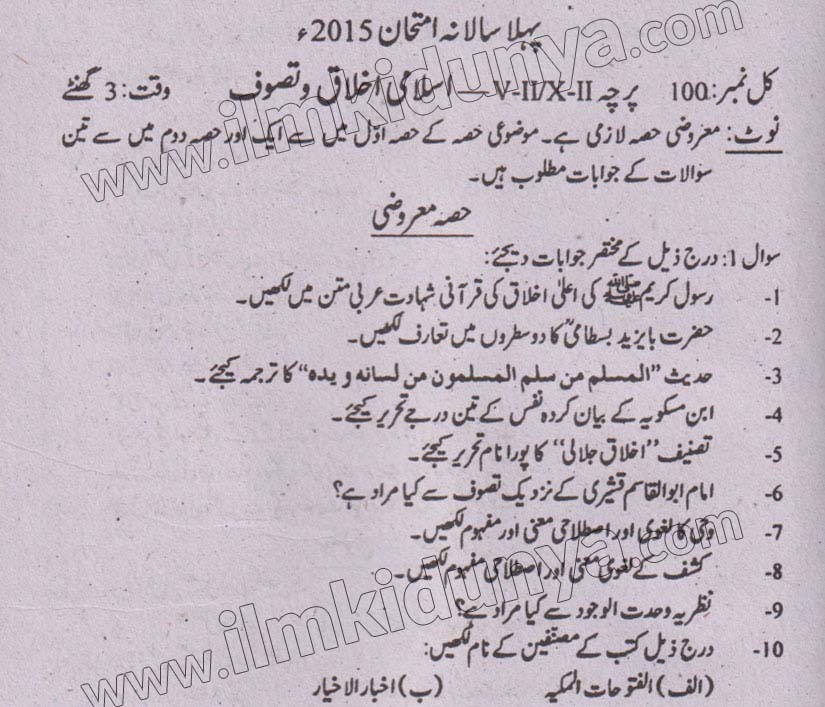 پہلا سالانہ امتحان 2015ء
کل نمبر: 100 پرچہ V-II/X-II — اسلامی اخلاق و تصوف وقت: 3 گھنٹے
نوٹ: معروضی حصہ لازمی ہے۔ موضوعی حصہ کے حصہ اوّل میں سے ایک اور حصہ دوم میں سے تین
سوالات کے جوابات مطلوب ہیں۔
حصہ معروضی
سوال 1: درج ذیل کے مختصر جوابات دیجئے:
1- رسول کریم ﷺ کی اعلیٰ اخلاق کی قرآنی شہادت عربی متن میں لکھیں۔
2- حضرت بایزید بسطامیؒ کا دو سطروں میں تعارف لکھیں۔
3- حدیث "المسلم من سلم المسلمون من لسانه و يده" کا ترجمہ کیجئے۔
4- ابن مسکویہ کے بیان کردہ نفس کے تین درجے تحریر کیجئے۔
5- تصنیف "اخلاق جلالی" کا پورا نام تحریر کیجئے۔
6- امام ابوالقاسم قشیری کے نزدیک تصوف سے کیا مراد ہے؟
7- وحی کا لغوی اور اصطلاحی معنی اور مفہوم لکھیں۔
8- کشف کے لغوی معنی اور اصطلاحی مفہوم لکھیں۔
9- نظریہ وحدت الوجود سے کیا مراد ہے؟
10- درج ذیل کتب کے مصنفین کے نام لکھیں:
(الف) الفتوحات المکیہ (ب) اخبار الاخیار
www.ilmkidunya.com
www.ilmkidunya.com